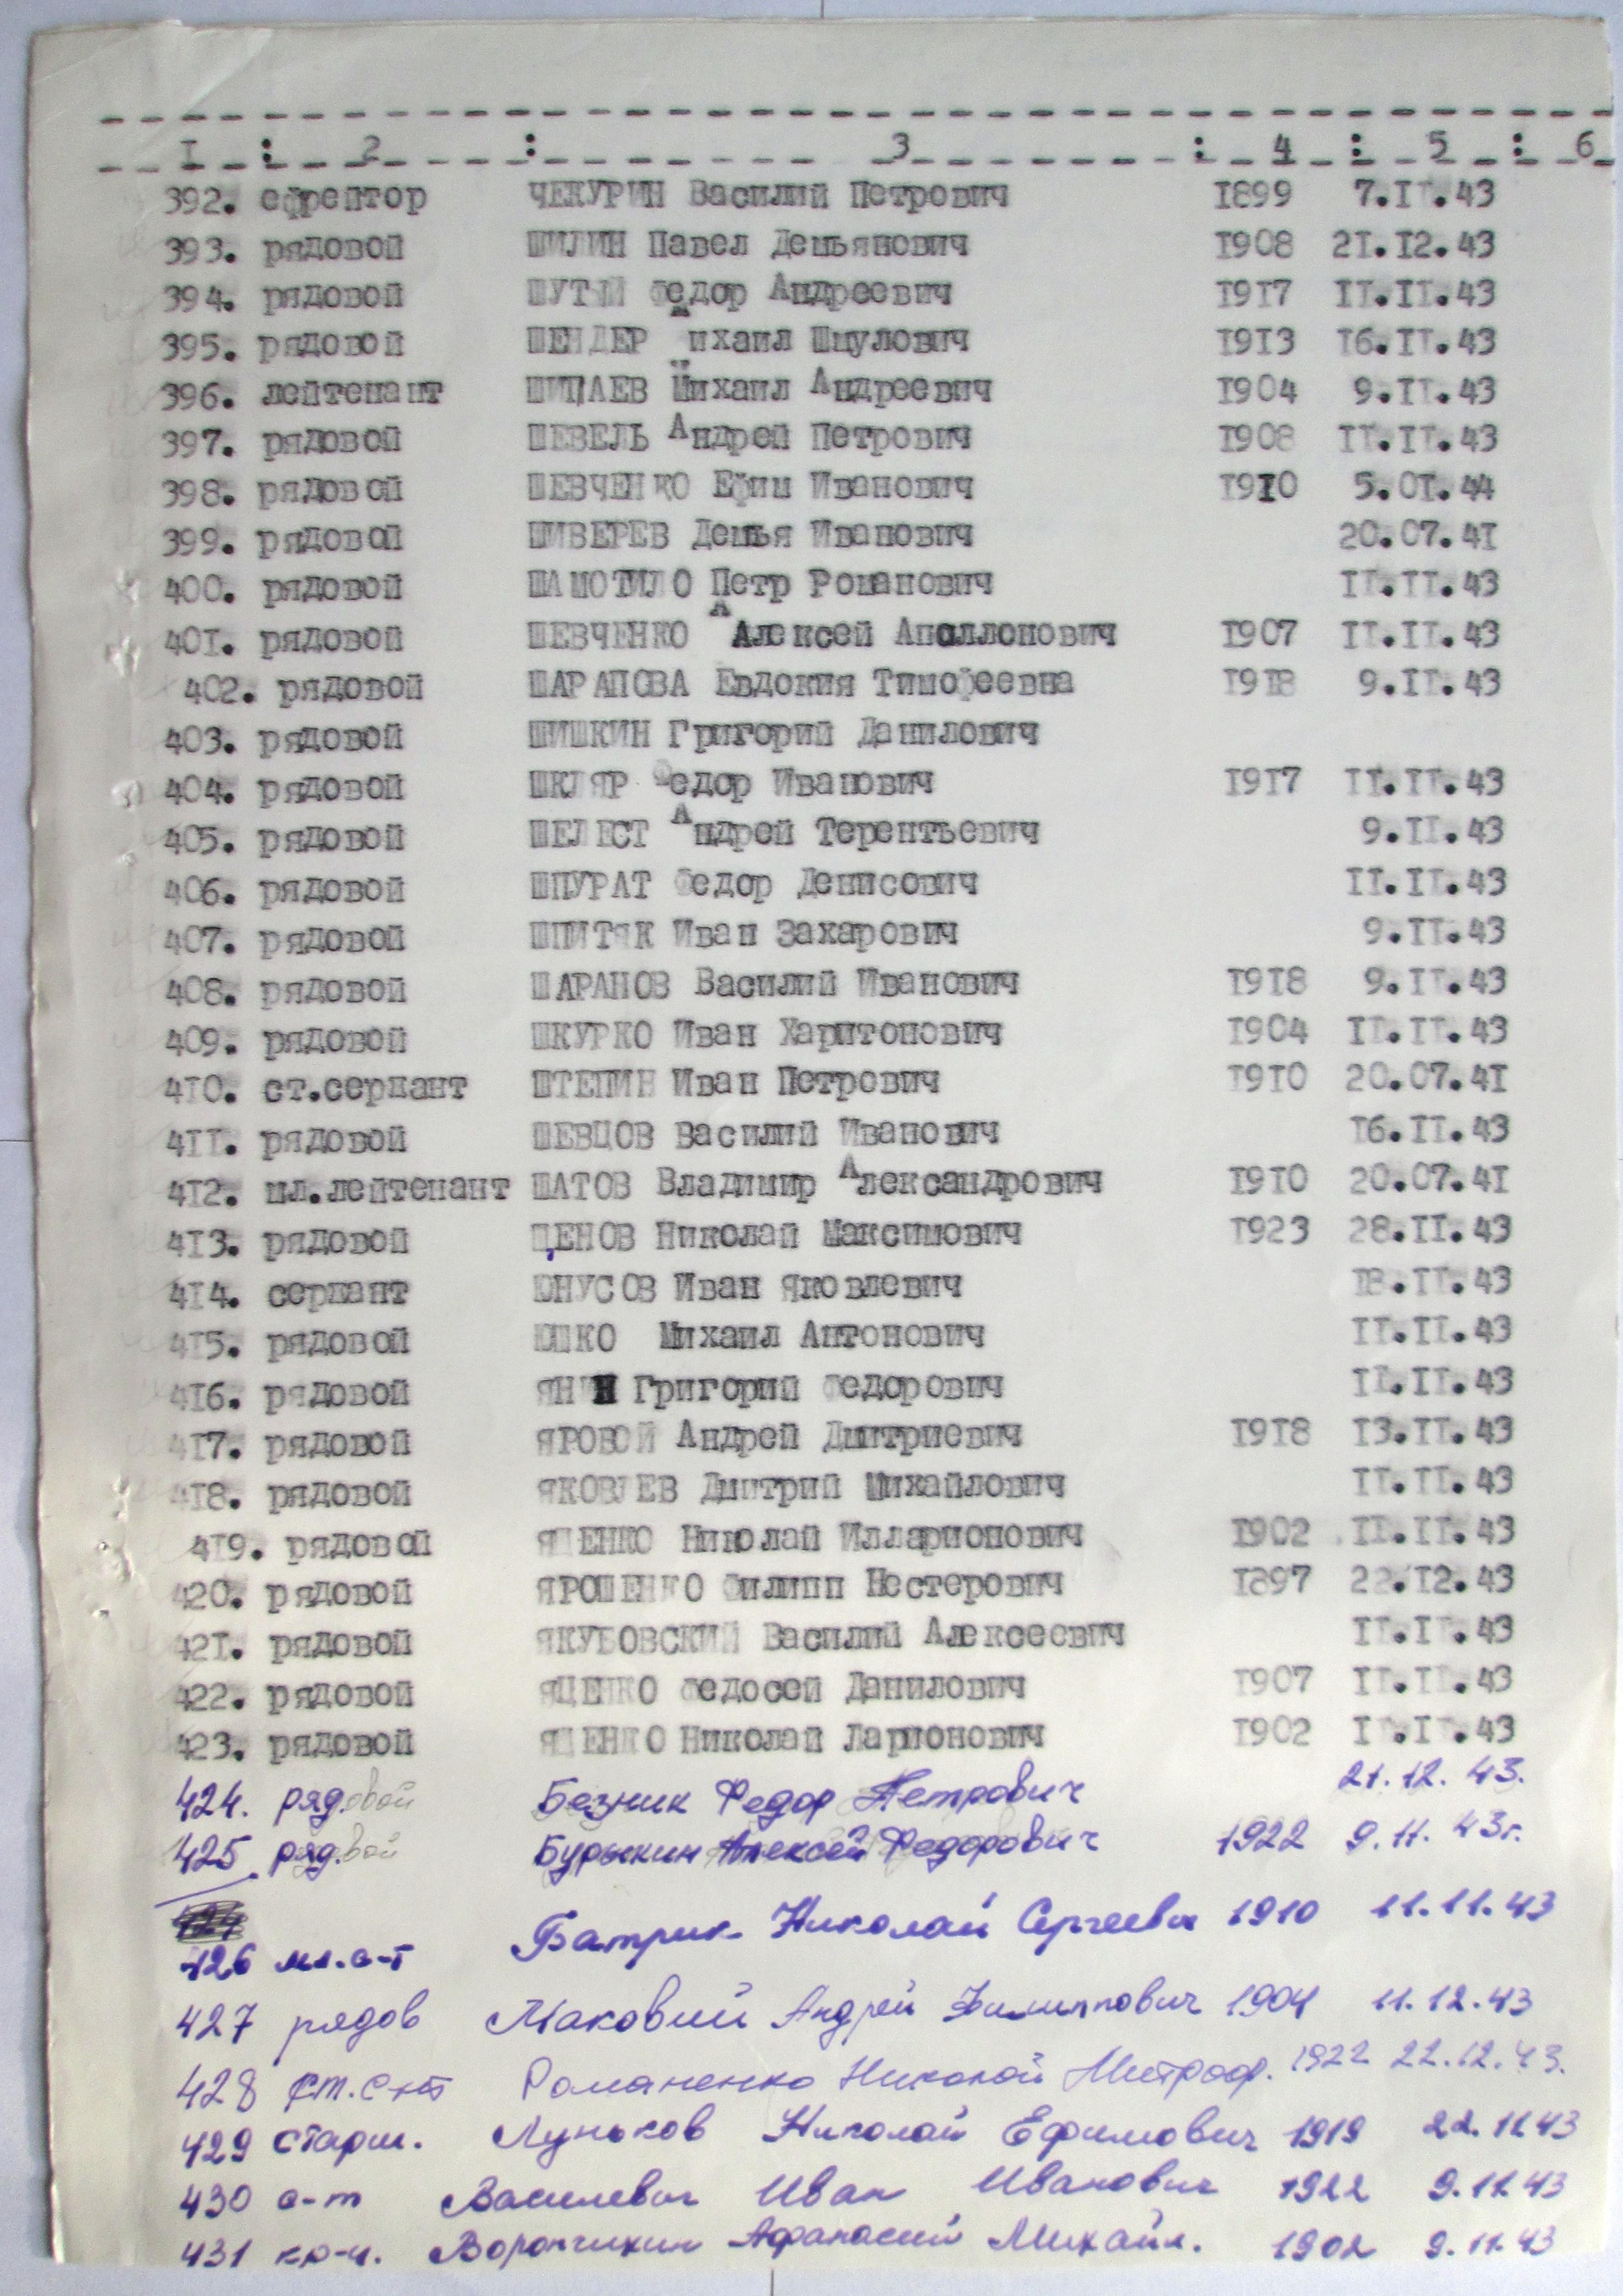 I : 2 : 3 : 4 : 5 : 6
392. ефрейтор ЧЕКУРИН Василий Петрович I899 7.II.43
393. рядовой ШИЛИН Павел Демьянович I908 2I.I2.43
394. рядовой ШУТЫЙ Федор Андреевич I9I7 II.II.43
395. рядовой ШЕНДЕР Михаил Шмулович I9I3 I6.II.43
396. лейтенант ШИПАЕВ Михаил Андреевич I904 9.II.43
397. рядовой ШЕВЕЛЬ Андрей Петрович I908 II.II.43
398. рядовой ШЕВЧЕНКО Ефим Иванович I9I0 5.0I.44
399. рядовой ШИВЕРЕВ Демья Иванович 20.07.4I
400. рядовой ШАМОТИЛО Петр Романович II.II.43
40I. рядовой ШЕВЧЕНКО Алексей Аполлонович I907 II.II.43
402. рядовой ШАРАПОВА Евдокия Тимофеевна I9I8 9.II.43
403. рядовой ШИШКИН Григорий Данилович
404. рядовой ШКЛЯР Федор Иванович I9I7 II.II.43
405. рядовой ШЕЛЕСТ Андрей Терентьевич 9.II.43
406. рядовой ШПУРАТ Федор Денисович II.II.43
407. рядовой ШПИТЯК Иван Захарович 9.II.43
408. рядовой ШАРАНОВ Василий Иванович I9I8 9.II.43
409. рядовой ШКУРКО Иван Харитонович I904 II.II.43
4I0. ст.сержант ШТЕПИН Иван Петрович I9I0 20.07.4I
4II. рядовой ШЕВЦОВ Василий Иванович I6.II.43
4I2. мл.лейтенант ШАТОВ Владимир Александрович I9I0 20.07.4I
4I3. рядовой ЩЕНОВ Николай Максимович I923 28.II.43
4I4. сержант ЮНУСОВ Иван Яковлевич I8.II.43
4I5. рядовой ЮШКО Михаил Антонович II.II.43
4I6. рядовой ЯНИН Григорий Федорович II.II.43
4I7. рядовой ЯРОВОЙ Андрей Дмитриевич I9I8 I3.II.43
4I8. рядовой ЯКОВЛЕВ Дмитрий Михайлович II.II.43
4I9. рядовой ЯЦЕНКО Николай Илларионович I902 II.II.43
420. рядовой ЯРОШЕНКО Филипп Нестерович I897 22.I2.43
42I. рядовой ЯКУБОВСКИЙ Василий Алексеевич II.II.43
422. рядовой ЯЦЕНКО Федосей Данилович I907 II.II.43
423. рядовой ЯЦЕНКО Николай Ларионович I902 II.II.43
424. рядовой Безник Федор Петрович 21.12.43.
425 рядовой Бурыкин Алексей Федорович 1922 9.11.43г.
426 мл.с-т Батрик Николай Сергеевич 1910 11.11.43
427 рядов Маковий Андрей Филиппович 1904 11.12.43
428 ст.с-нт Романенко Николай Митроф. 1922 22.12.43.
429 старш. Луньков Николай Ефимович 1919 22.11.43
430 с-т Василевич Иван Иванович 1922 9.11.43
431 кр-ц. Ворончихин Афанасий Михайл. 1902 9.11.43